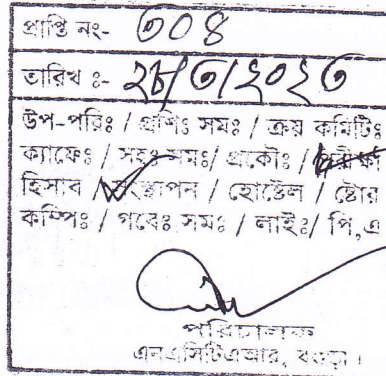 প্রাপ্তি নং- ৩০৪
তারিখ ঃ- ২৮/৩/২০২৩
উপ-পরিঃ / প্রশিঃ সমঃ / ক্রয় কমিটিঃ
ক্যাফেঃ / সহঃ সমঃ/ প্রকৌঃ / পরীক্ষা
হিসাব / সংস্থাপন / হোষ্টেল / ষ্টোর
কম্পিঃ / গবেঃ সমঃ / লাইঃ/ পি,এ
পরিচালক
এনএসিটিএআর, বগুড়া।